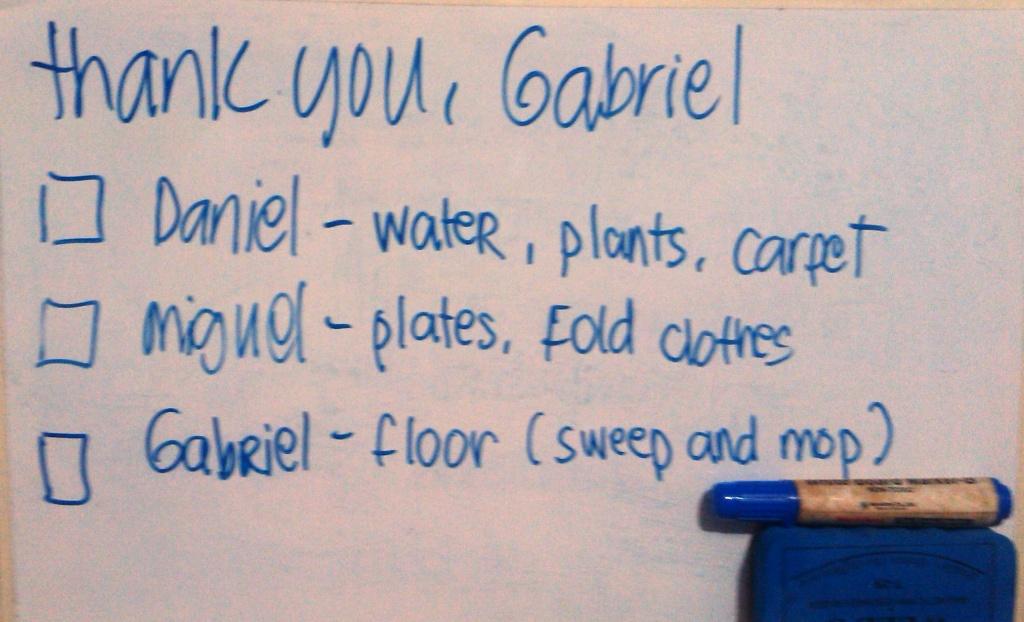 thank you, Gabriel
Daniel - water, plants, carpet
miguel - plates, Fold clothes
Gabriel - floor (sweep and mop)